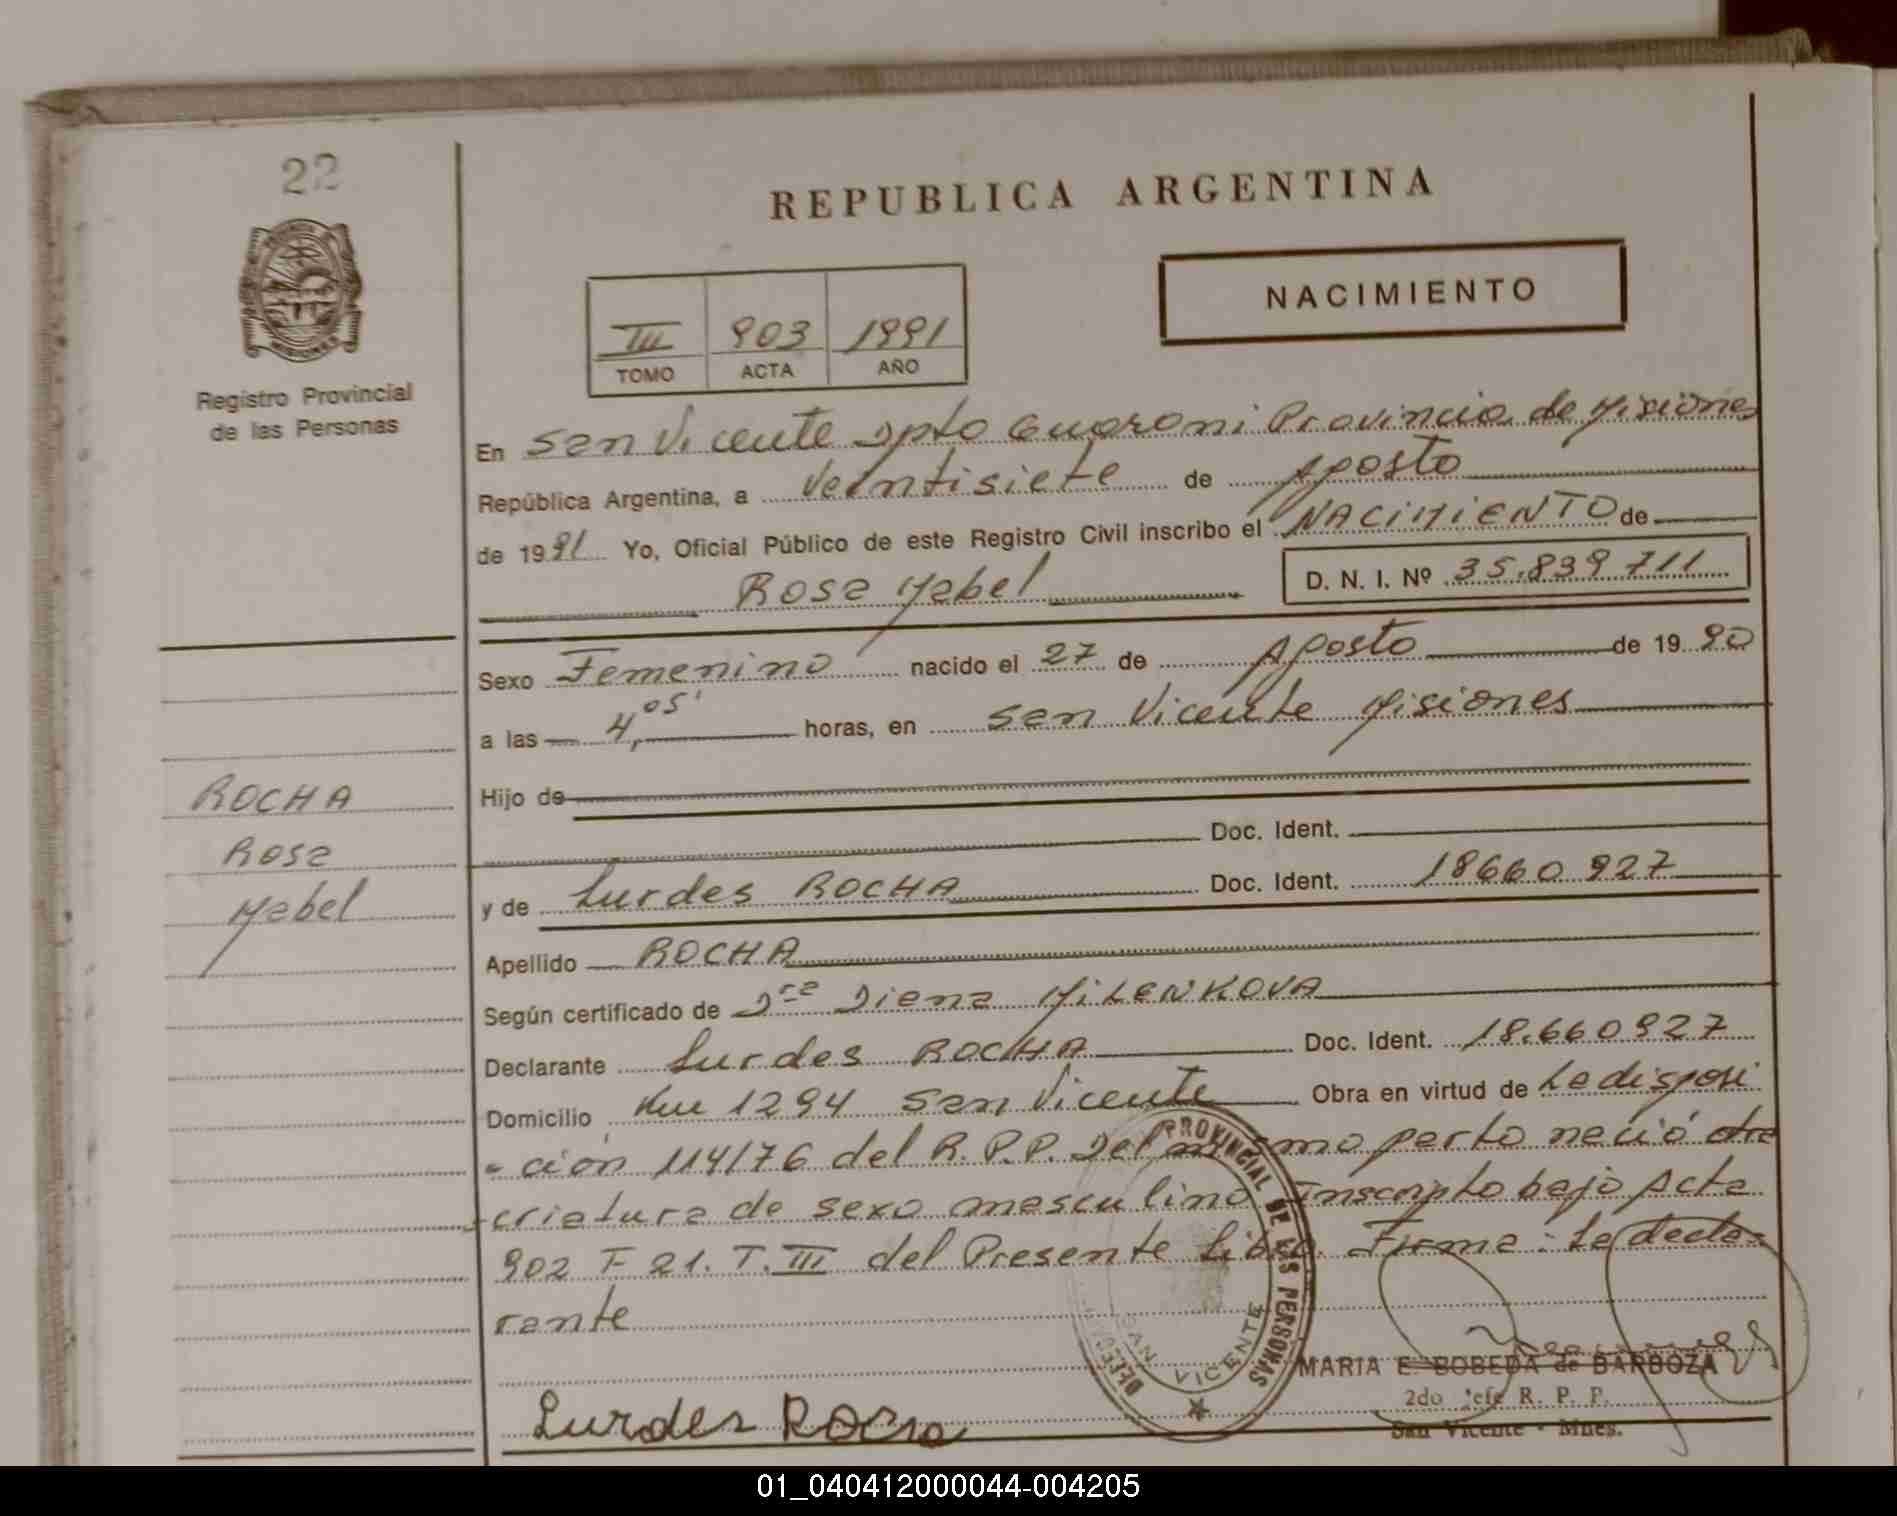 22
REPUBLICA ARGENTINA
MISIONES
Registro Provincial
de las Personas
III 903 1991
TOMO ACTA AÑO
NACIMIENTO
En San Vicente Dpto Guaroni Provincia de Misiones
República Argentina, a Veintisiete de Agosto
de 1991 Yo, Oficial Público de este Registro Civil inscribo el NACIMIENTO de
Rosa Mabel D. N. I. Nº 35.839 711
Sexo Femenino nacido el 27 de Agosto de 1990
a las 4,05' horas, en San Vicente Misiones
Hijo de
Doc. Ident.
y de Lurdes ROCHA Doc. Ident. 18660 927
Apellido ROCHA
Según certificado de Dra Diana MiLENKOVA
Declarante Lurdes ROCHA Doc. Ident. 18.660927
Domicilio Km 1294 San Vicente Obra en virtud de La disposi
- ción 114/76 del R.P.P. Del mismo parto nació otra
criatura de sexo masculino Inscripto bajo Acta
902 F 21. T. III del Presente Libro. Firma: La decla-
rante
ROCHA
Rosa
Mabel
PROVINCIAL DE LAS PERSONAS
SAN VICENTE
Lurdes Rocha
MARIA E. BOBEDA de BARBOZA
2do Jefe R. P. P.
San Vicente - Mnes.
01_040412000044-004205